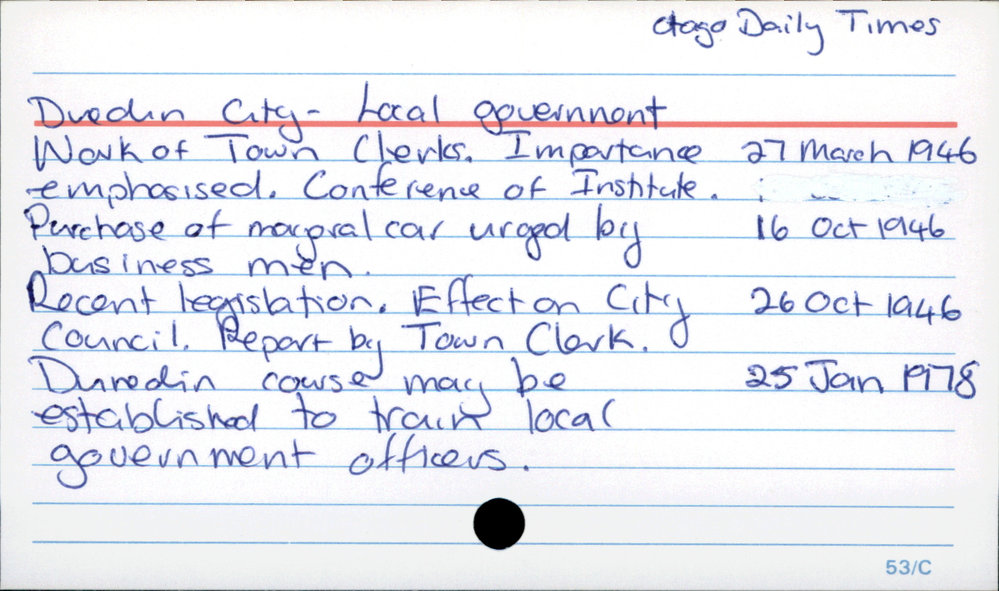 Otago Daily Times
Dunedin City - Local government
Work of Town Clerks. Importance 27 March 1946
emphasised. Conference of Institute.
Purchase of mayoral car urged by 16 Oct 1946
business men.
Recent legislation. Effect on City 26 Oct 1946
Council. Report by Town Clerk.
Dunedin course may be 25 Jan 1978
established to train local
government officers.
53/C